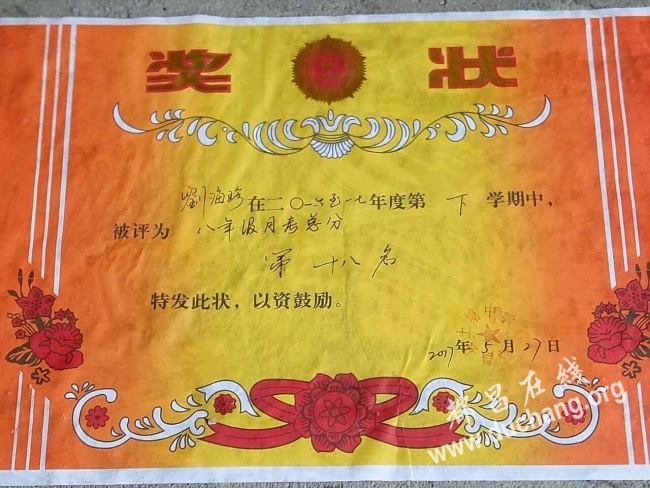 奖状
劉海珍在二〇一六至一七年度第下学期中，
被评为八年级月考总分
第十八名
特发此状，以资鼓励。
2017年5月27日
都昌在线
www.duchang.org